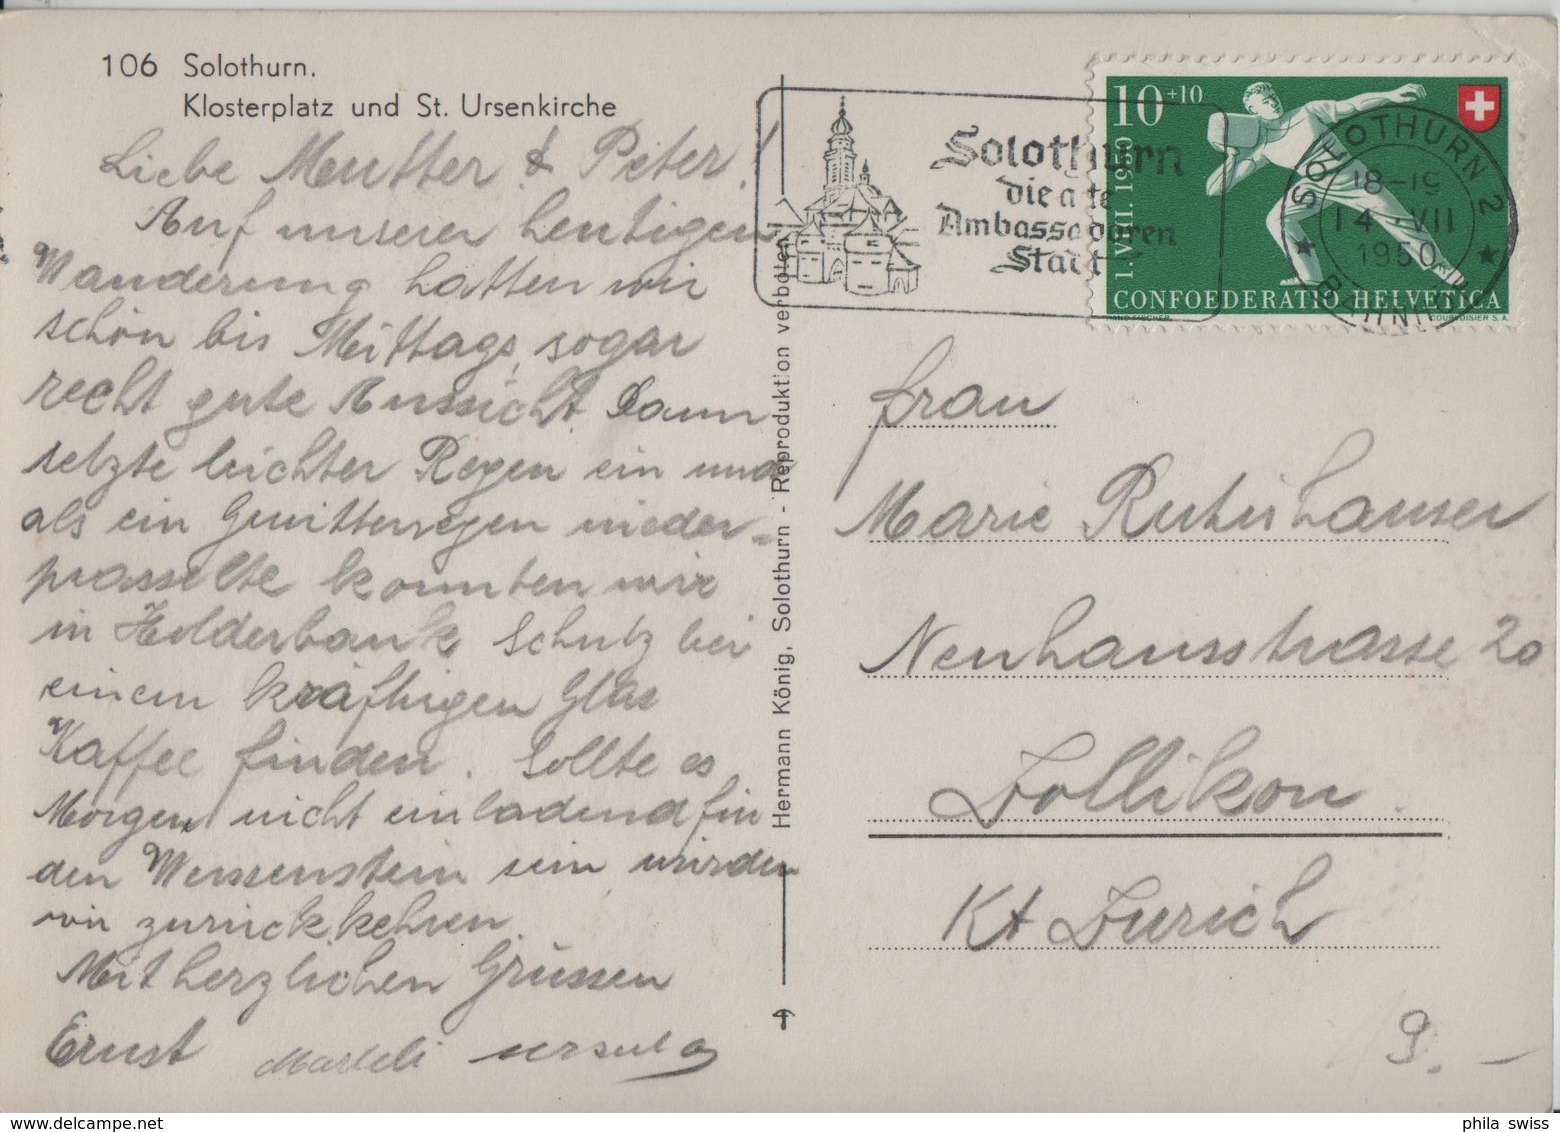 106 Solothurn.
Klosterplatz und St. Ursenkirche
Liebe Mutter & Peter!
Auf unserer heutigen
Wanderung hatten wir
schön bis Mittags, sogar
recht gute Aussicht. Dann
setzte leichter Regen ein und
als ein Gewitterregen nieder-
prasselte konnten wir
in Holderbank Schutz bei
einem kräftigen Glas
Kaffee finden. Sollte es
Morgen nicht einladend für
den Weissenstein sein würden
wir zurückkehren.
Mit herzlichen Grüssen
Ernst Marteli Ursula
Hermann König, Solothurn - Reproduktion verboten
Solothurn
die alte
Ambassadoren
Stadt
10+10
1. VIII. 1950
CONFOEDERATIO HELVETICA
COURVOISIER S.A.
SOLOTHURN 2
18-19
14.-VII
1950
BAHNHOF
Frau
Marie Rutishauser
Neuhausstrasse 20
Zollikon
Kt Zürich
9.-
phila swiss